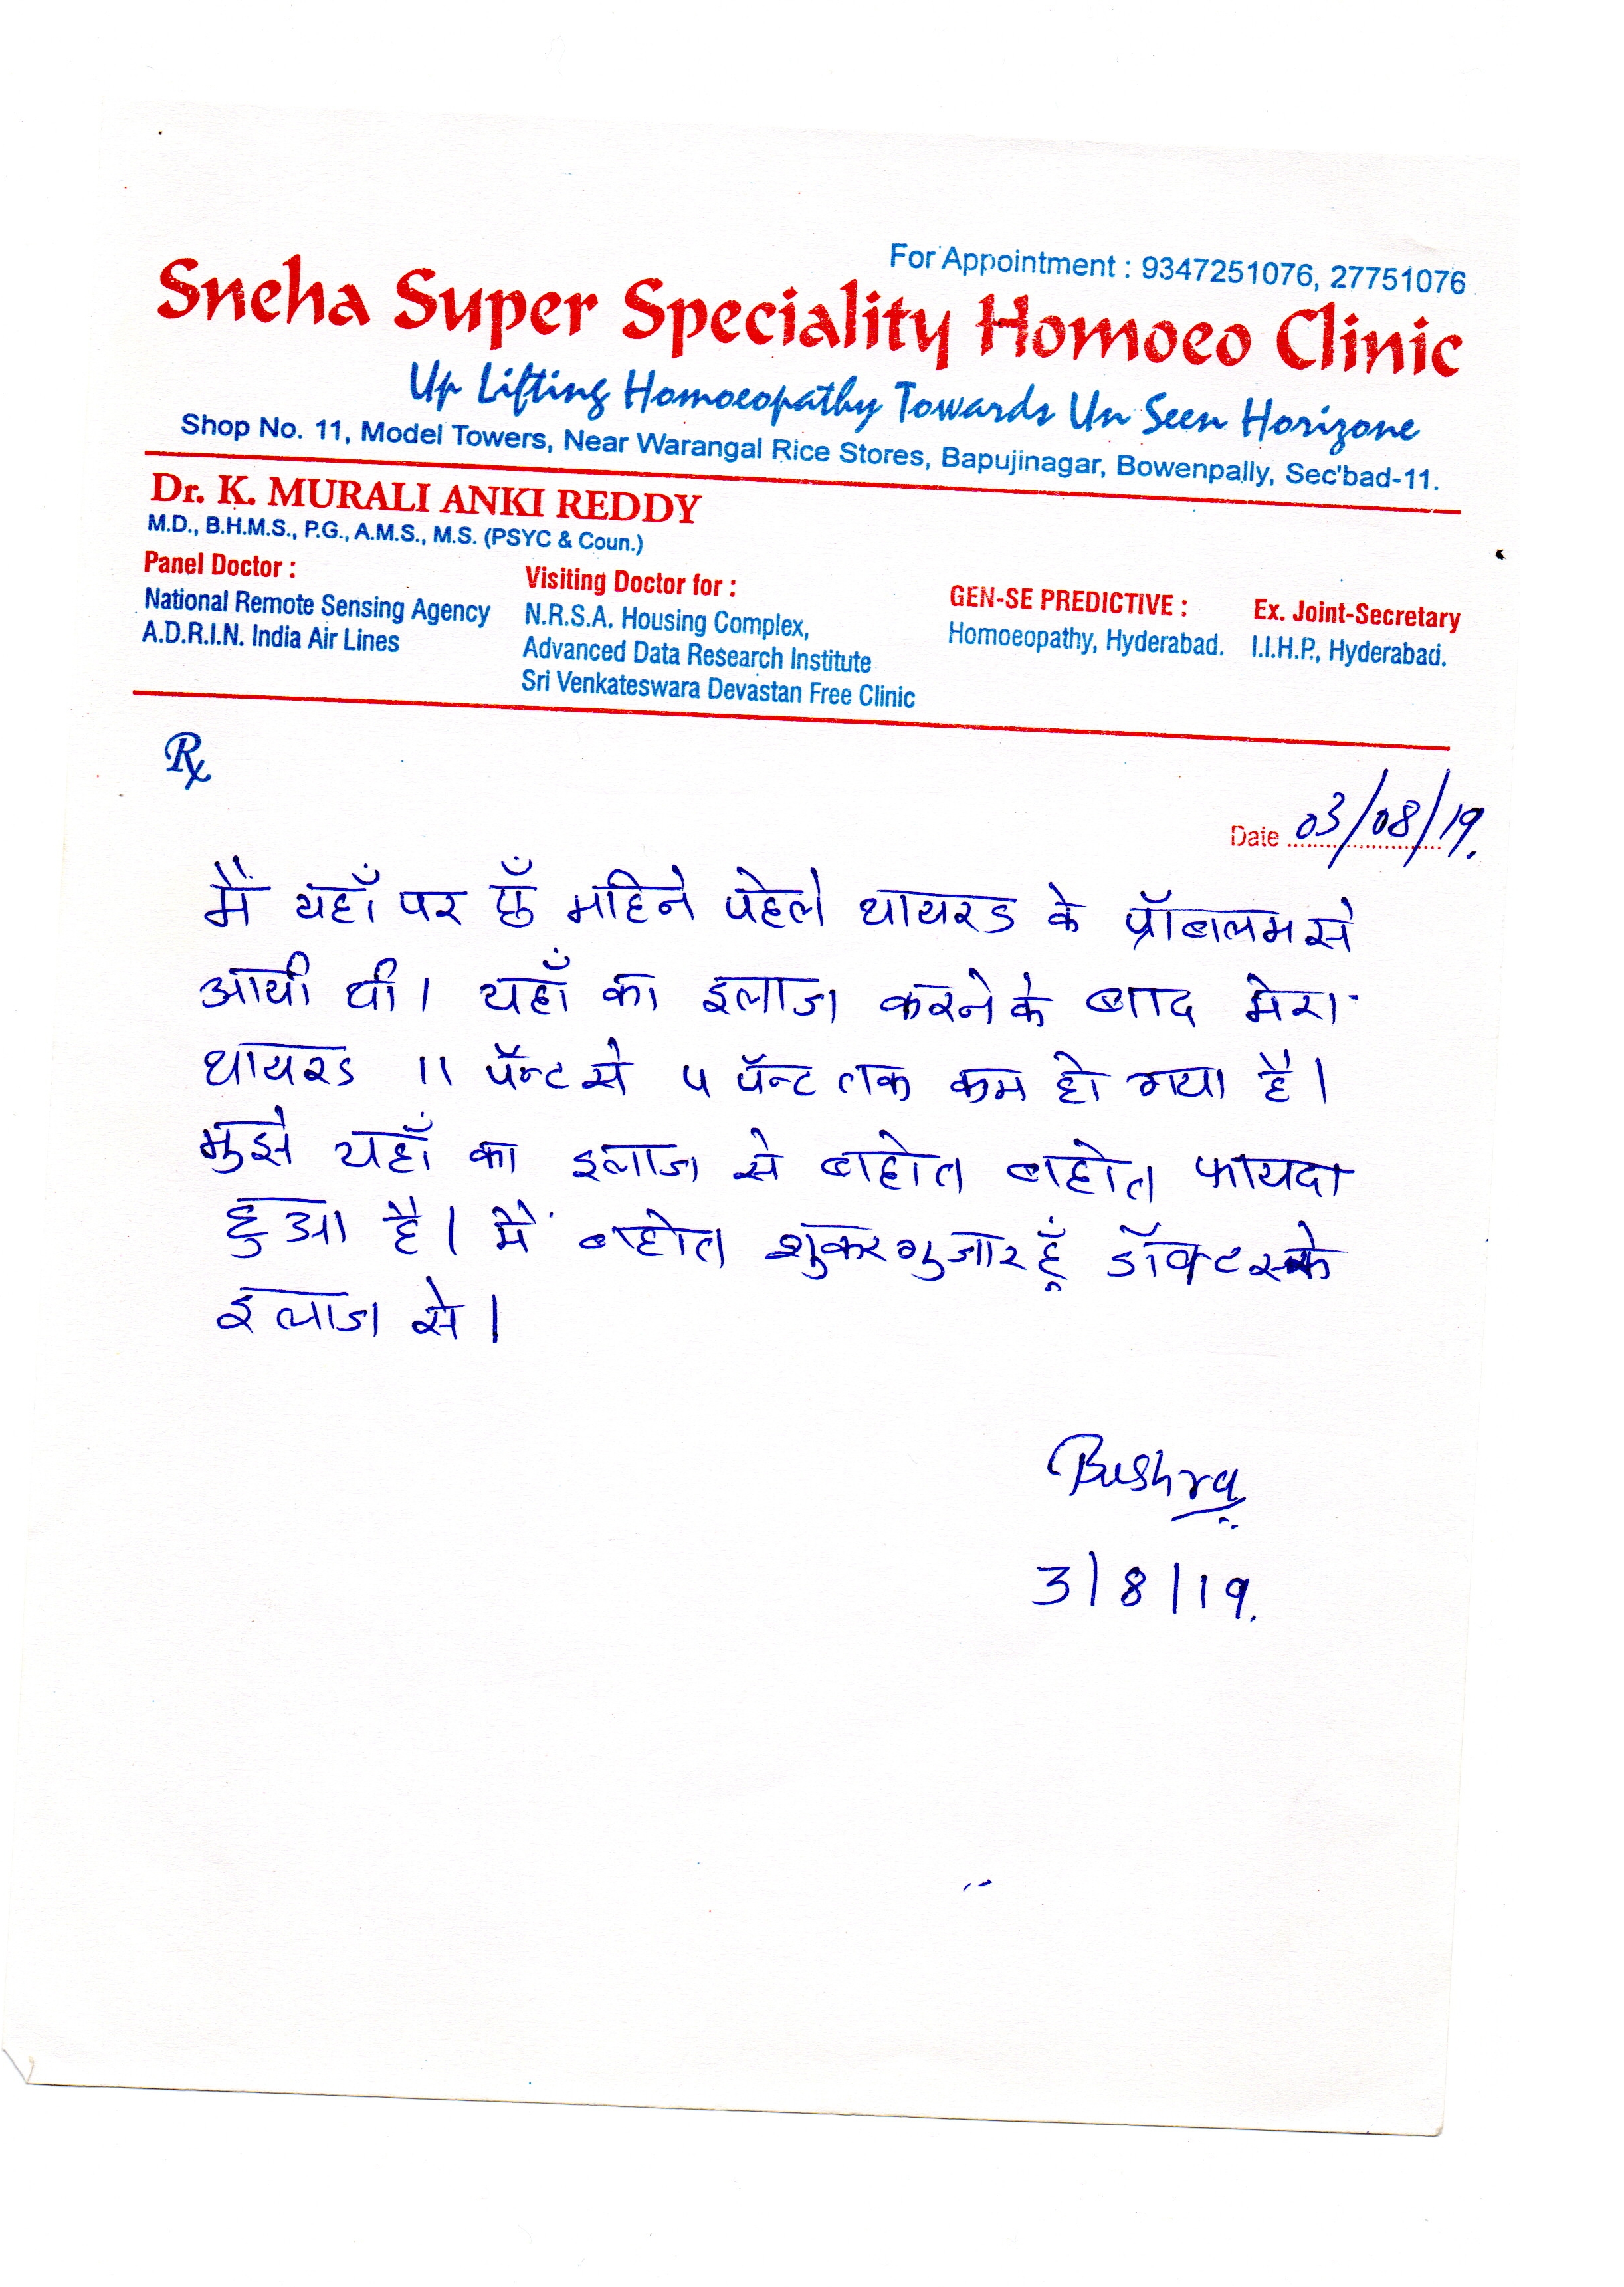 For Appointment : 9347251076, 27751076
Sneha Super Speciality Homoeo Clinic
Up Lifting Homoeopathy Towards Un Seen Horizone
Shop No. 11, Model Towers, Near Warangal Rice Stores, Bapujinagar, Bowenpally, Sec'bad-11.
Dr. K. MURALI ANKI REDDY
M.D., B.H.M.S., P.G., A.M.S., M.S. (PSYC & Coun.)
Panel Doctor :
National Remote Sensing Agency
A.D.R.I.N. India Air Lines
Visiting Doctor for :
N.R.S.A. Housing Complex,
Advanced Data Research Institute
Sri Venkateswara Devastan Free Clinic
GEN-SE PREDICTIVE :
Homoeopathy, Hyderabad.
Ex. Joint-Secretary
I.I.H.P., Hyderabad.
Rx
Date 03/08/19.
मैं यहाँ पर छँ महिने पेहले थायरड के प्रॉबलम से
आयी थी। यहाँ का इलाज करने के बाद मेरा
थायरड 11 पॅन्ट से 5 पॅन्ट तक कम हो गया है।
मुझे यहाँ का इलाज से बहोत बहोत फायदा
हुआ है। मैं बहोत शुकरगुजार हूँ डॉक्टर के
इलाज से।
Bushra
3/8/19.